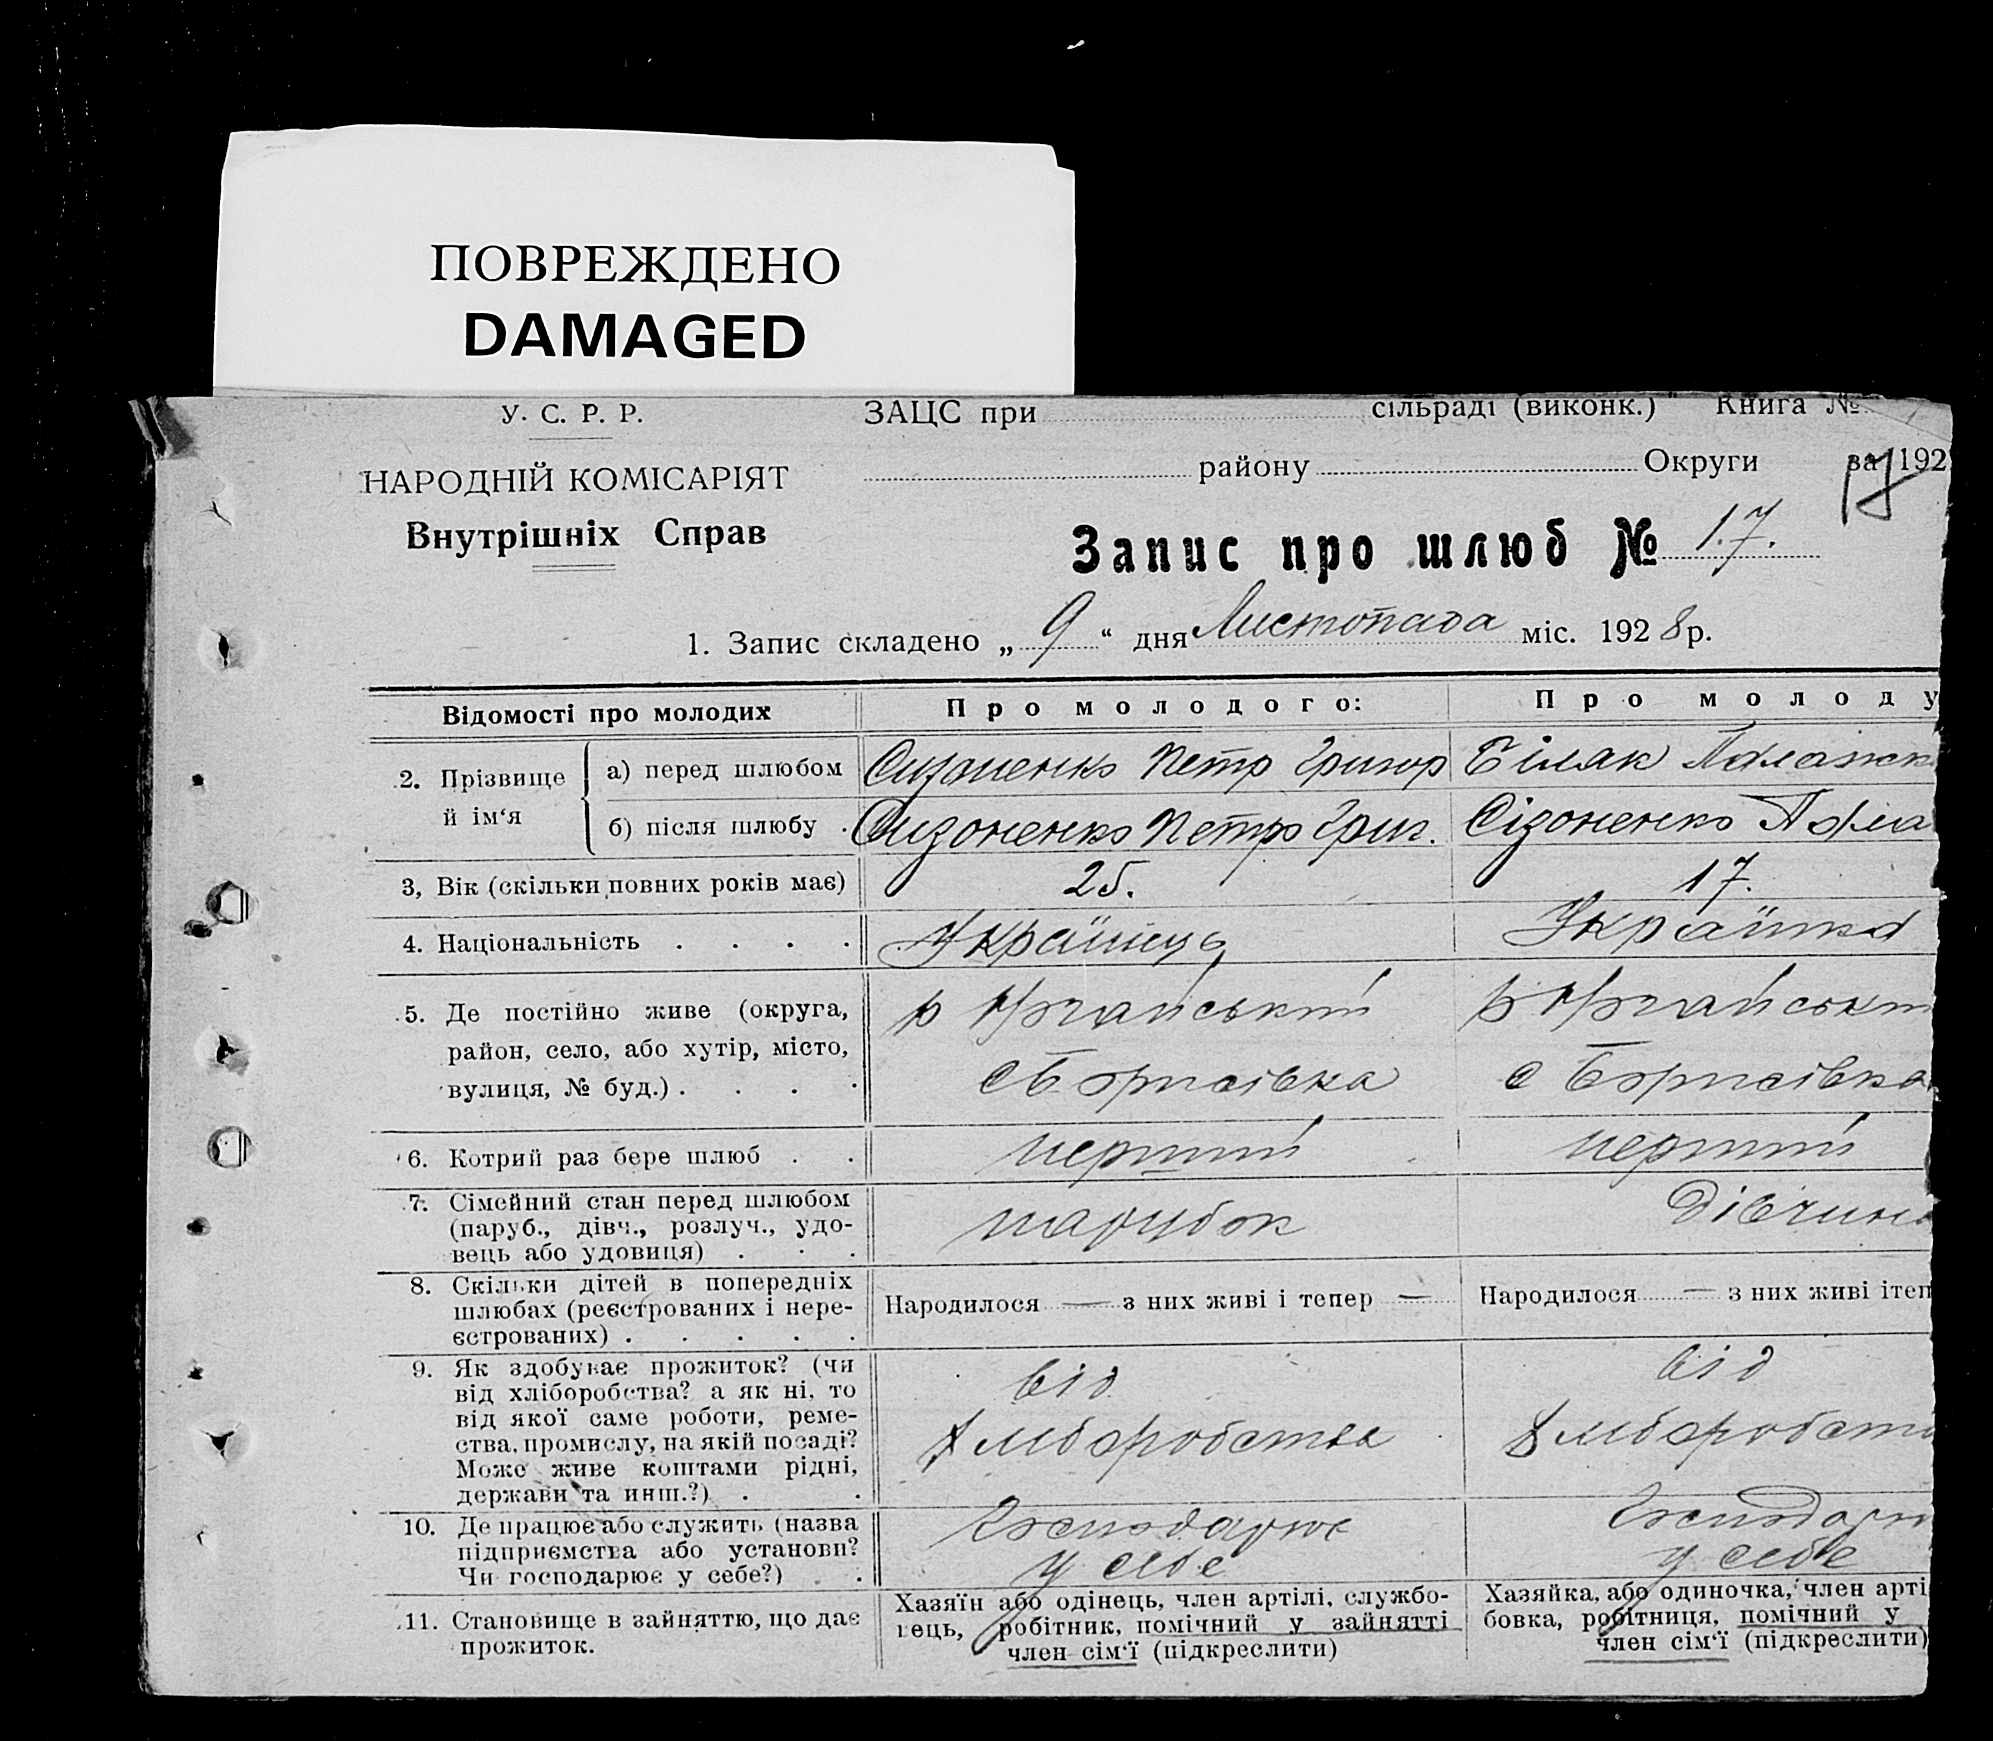 ПОВРЕЖДЕНО
DAMAGED
У. С. Р. Р.
ЗАЦС при сільраді (виконк.) Книга №
НАРОДНІЙ КОМІСАРІЯТ
району Округи за 192
Внутрішніх Справ
17
Запис про шлюб № 17.
1. Запис складено „ 9 “ дня Листопада міс. 1928 р.
Відомості про молодих
Про молодого:
Про молоду
2. Прізвище й ім‘я
а) перед шлюбом
Сизоненко Петр Григор
Біляк Палажк
б) після шлюбу .
Сизоненко Петро Григ.
Сізоненко Пала
3, Вік (скільки повних років має)
25.
17.
4. Національність . . . .
Українець
Українка
5. Де постійно живе (округа,
район, село, або хутір, місто,
вулиця, № буд.) . . . .
р
с Борисівка
р
с Борисівка
6. Котрий раз бере шлюб . .
перший
перший
7. Сімейний стан перед шлюбом
(паруб., дівч., розлуч., удо-
вець або удовиця) . . .
парубок
Дівчина
8. Скільки дітей в попередніх
шлюбах (реєстрованих і нере-
єстрованих) . . . . .
Народилося — з них живі і тепер —
Народилося — з них живі ітеп
9. Як здобуває прожиток? (чи
від хліборобства? а як ні, то
від якої саме роботи, реме-
ства, промислу, на якій посаді?
Може живе коштами рідні,
держави та инш.?) . .
від
хліборобства
від
хліборобств
10. Де працює або служить (назва
підприємства або установи?
Чи господарює у себе?) . .
Господарює
у себе
Господарю
у себе
11. Становище в зайняттю, що дає
прожиток.
Хазяїн або одінець, член артілі, службо-
вець, робітник, помічний у зайнятті
член сім‘ї (підкреслити)
Хазяйка, або одиночка, член арті
бовка, робітниця, помічний у
член сім‘ї (підкреслити)